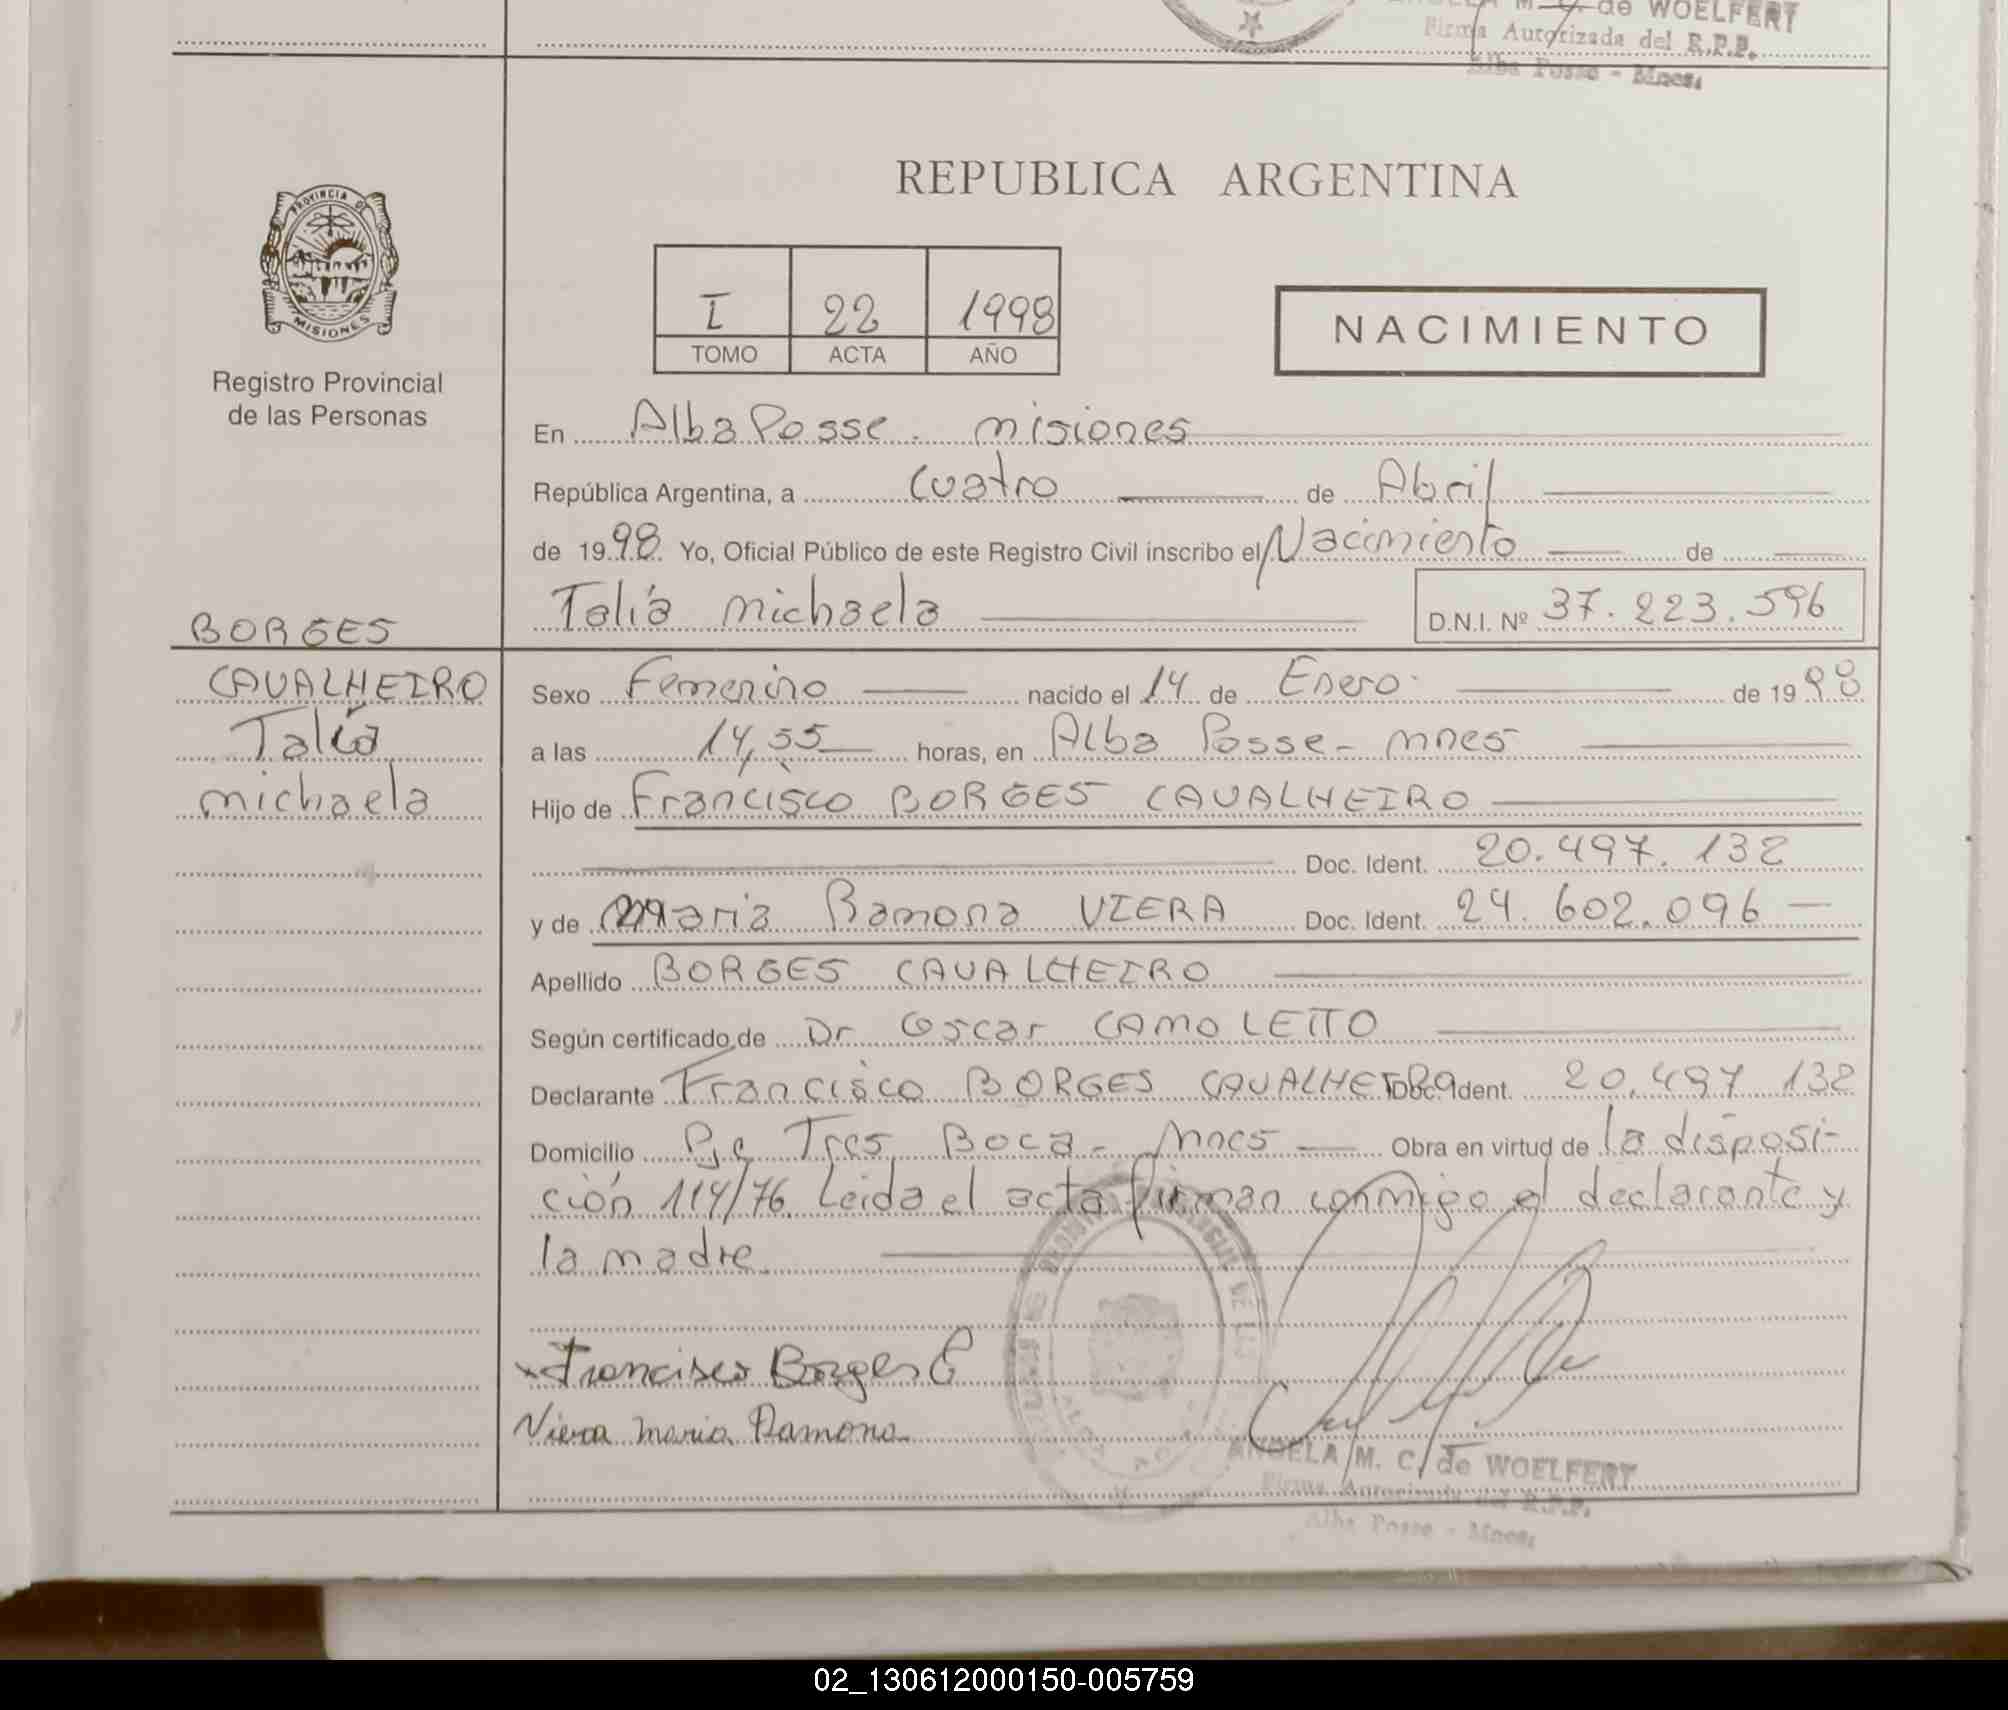 M. C. de WOELFERT
Firma Autorizada del R.P.P.
Alba Posse - Mnes.
PROVINCIA DE
MISIONES
Registro Provincial
de las Personas
REPUBLICA ARGENTINA
I 22 1998
TOMO ACTA AÑO
NACIMIENTO
En Alba Posse. misiones
República Argentina, a cuatro de Abril
de 1998. Yo, Oficial Público de este Registro Civil inscribo el Nacimiento de
Talía michaela D.N.I. Nº 37.223.596
BORGES
CAVALHEIRO
Talía
michaela
Sexo Femenino nacido el 14 de Enero de 1998
a las 14,55 horas, en Alba Posse - mnes
Hijo de Francisco BORGES CAVALHEIRO
Doc. Ident. 20.497.132
y de Maria Ramona VIERA Doc. Ident. 24.602.096
Apellido BORGES CAVALHEIRO
Según certificado de Dr Oscar CAMOLETTO
Declarante Francisco BORGES CAVALHEIRO Doc. Ident. 20.497 132
Domicilio Pje Tres Boca - Mnes Obra en virtud de la disposi-
ción 114/76. Leida el acta firman conmigo el declarante y
la madre.
Francisco Borges C
Viera maria Ramona
ANGELA M. C. de WOELFERT
Firma Autorizada del R.P.P.
Alba Posse - Mnes.
02_130612000150-005759